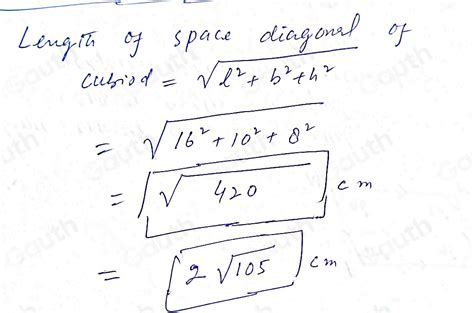 Length of space diagonal of
cubiod = √l² + b² + h²
= √16² + 10² + 8²
= √420 cm
= 2√105 cm